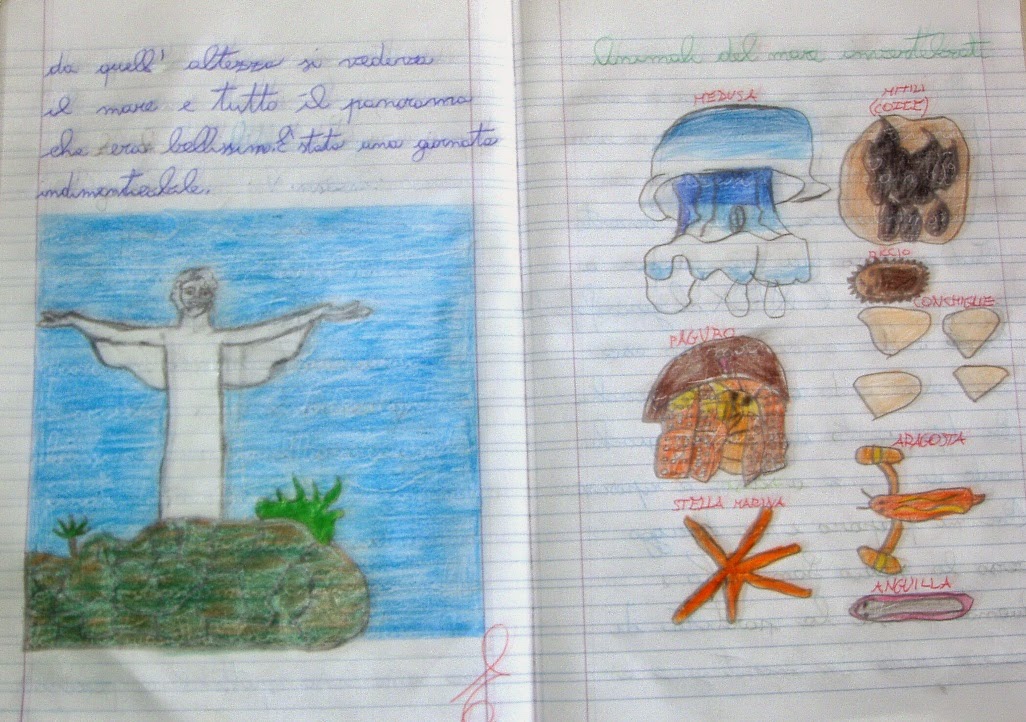 da quell' altezza si vedeva
il mare e tutto il panorama
che era bellissimo. È stata una giornata
indimenticabile.
Animali del mare invertebrati
MEDUSA
MITILI
(COZZE)
RICCIO
CONCHIGLIE
PAGURO
ARAGOSTA
STELLA MARINA
ANGUILLA